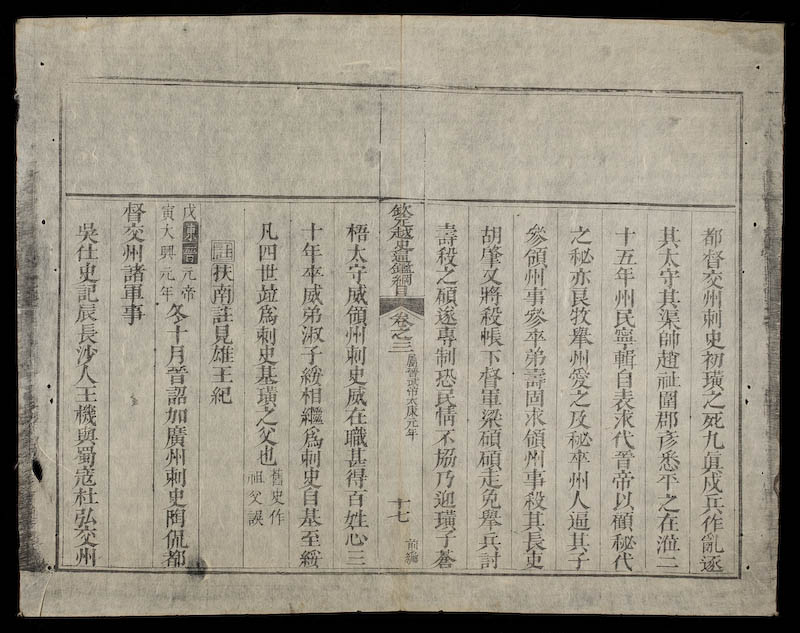 都督交州刺史初璜之死九真戍兵作亂逐
其太守其渠帥趙祉圍郡彥悉平之在涖二
十五年州民寧輯自表求代晉帝以顧秘代
之秘亦良牧舉州愛之及秘卒州人逼其子
參領州事參卒弟壽固求領州事殺其長吏
胡肇又將殺帳下督軍梁碩碩走免舉兵討
壽殺之碩遂專制恐民情不協乃迎璜子蒼
欽定越史通鑑綱目
卷之三
屬晉武帝太康元年
十七
前編
梧太守威領州刺史威在職甚得百姓心三
十年卒威弟淑子綏相繼爲刺史自基至綏
凡四世竝爲刺史基璜之父也舊史作
祖父誤
註扶南註見雄王紀
戊東晉元帝
寅大興元年冬十月晉詔加廣州刺史陶侃都
督交州諸軍事
吳仕史記辰長沙人王機與蜀寇杜弘交州